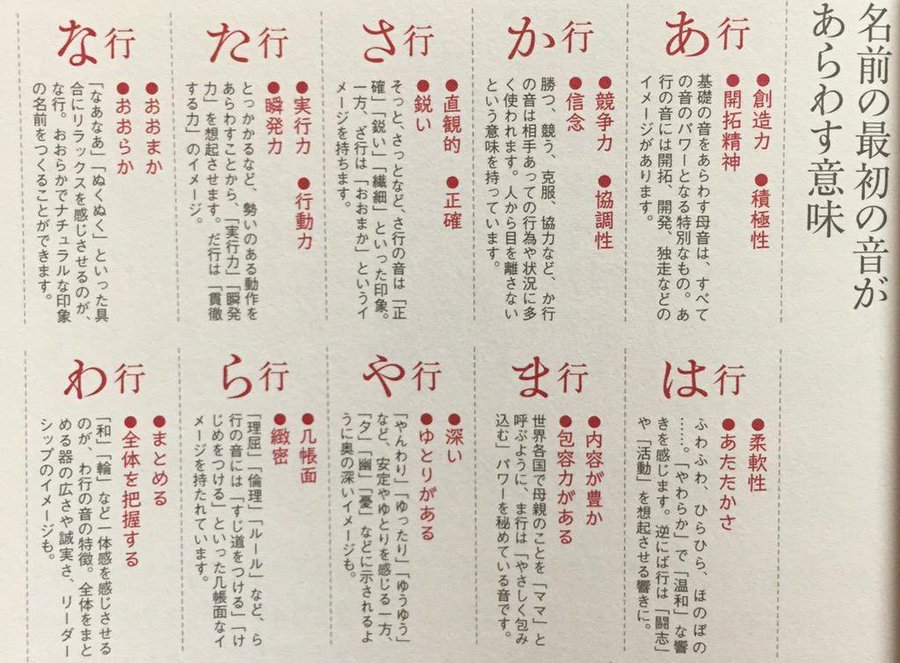 名前の最初の音が
あらわす意味
あ行
●創造力 ●積極性
●開拓精神
基礎の音をあらわす母音は、すべて
の音のパワーとなる特別なもの。あ
行の音には開拓、開発、独走などの
イメージがあります。
か行
●競争力 ●協調性
●信念
勝つ、競う、克服、協力など、か行
の音は相手あっての行為や状況に多
く使われます。人から目を離さない
という意味を持っています。
さ行
●直観的 ●正確
●鋭い
そっと、さっとなど、さ行の音は「正
確」「鋭い」「繊細」といった印象。
一方、ざ行は「おおまか」というイ
メージを持ちます。
た行
●実行力 ●行動力
●瞬発力
とっかかるなど、勢いのある動作を
あらわすことから、「実行力」「瞬発
力」を想起させます。だ行は「貫徹
する力」のイメージ。
な行
●おおまか
●おおらか
「なあなあ」「ぬくぬく」といった具
合にリラックスを感じさせるのが、
な行。おおらかでナチュラルな印象
の名前をつくることができます。
は行
●柔軟性
●あたたかさ
ふわふわ、ひらひら、ほのぼの
……。「やわらか」で「温和」な響
きを感じます。逆にば行は「闘志」
や「活動」を想起させる響きに。
ま行
●内容が豊か
●包容力がある
世界各国で母親のことを「ママ」と
呼ぶように、ま行は「やさしく包み
込む」パワーを秘めている音です。
や行
●深い
●ゆとりがある
「やんわり」「ゆったり」「ゆうゆう」
など、安定やゆとりを感じる一方、
「夕」「幽」「憂」などに示されるよ
うに奥の深いイメージも。
ら行
●几帳面
●緻密
「理屈」「倫理」「ルール」など、ら
行の音には「すじ道をつける」「け
じめをつける」といった几帳面なイ
メージを持たれています。
わ行
●まとめる
●全体を把握する
「和」「輪」など一体感を感じさせる
のが、わ行の音の特徴。全体をまと
める器の広さや誠実さ、リーダー
シップのイメージも。